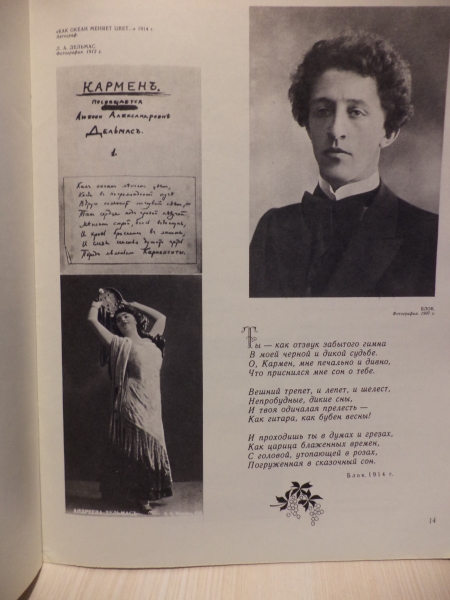 «КАК ОКЕАН МЕНЯЕТ ЦВЕТ...» 1914 г.
Автограф
Л. А. ДЕЛЬМАС.
Фотография 1913 г.
КАРМЕНЪ.
ПОСВЯЩАЕТСЯ
Любови Александровнѣ
Дельмасъ.
1.
Какъ океанъ мѣняетъ цвѣтъ,
Когда въ нагроможденной тучѣ
Вдругъ полыхнетъ мигнувшій свѣтъ, —
Такъ сердце подъ грозой пѣвучей
Мѣняетъ строй, боясь вздохнуть,
И кровь бросается въ ланиты,
И слезы счастья душатъ грудь
Передъ явленьемъ Карменситы.
АНДРЕЕВА-ДЕЛЬМАСЪ.
БЛОК.
Фотография 1907 г.
Ты — как отзвук забытого гимна
В моей черной и дикой судьбе.
О, Кармен, мне печально и дивно,
Что приснился мне сон о тебе.
Вешний трепет, и лепет, и шелест,
Непробудные, дикие сны,
И твоя одичалая прелесть —
Как гитара, как бубен весны!
И проходишь ты в думах и грезах,
Как царица блаженных времен,
С головой, утопающей в розах,
Погруженная в сказочный сон.
Блок. 1914 г.
14